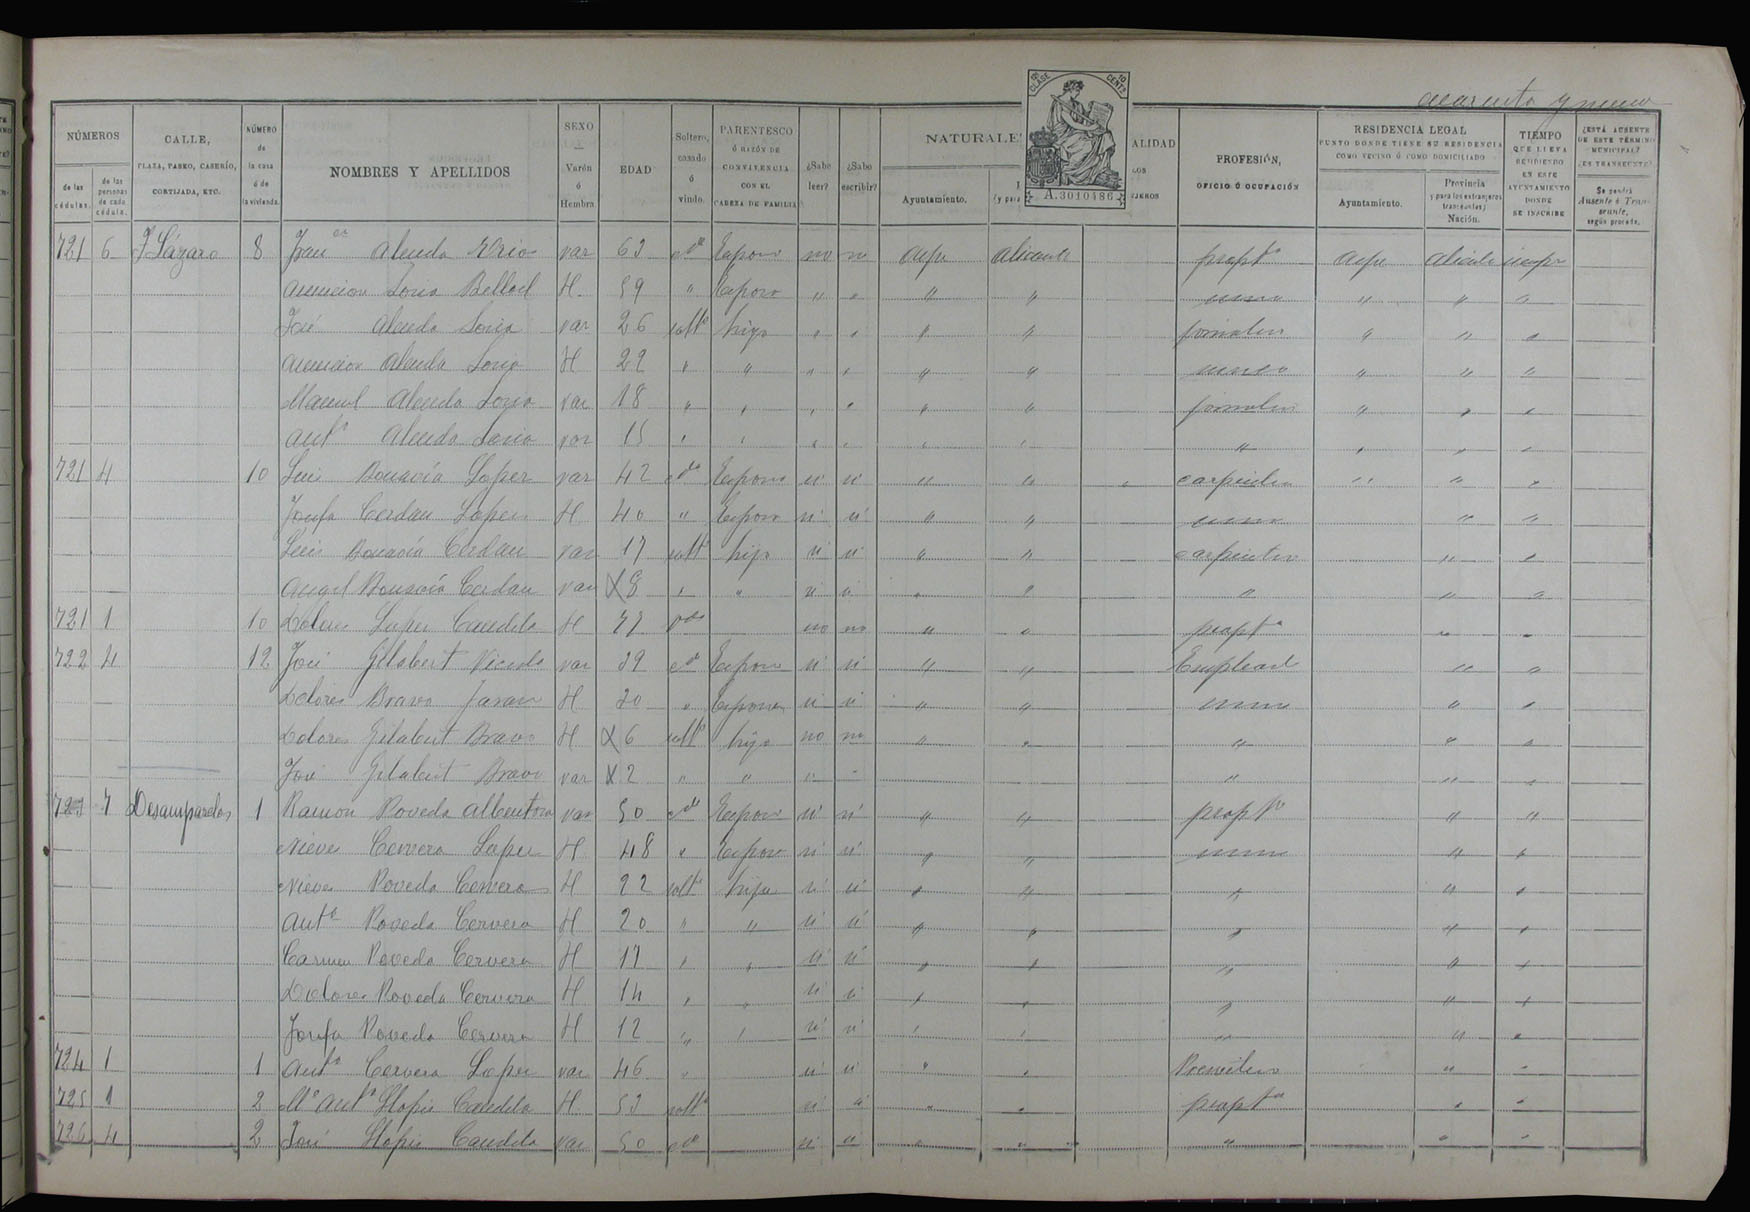 cuarenta y nueve
12ª CLASE 10 CENTS
A.3010486
NÚMEROS
de las cédulas.
de las personas de cada cédula.
CALLE,
PLAZA, PASEO, CASERÍO,
CORTIJADA, ETC.
NÚMERO
de
la casa
ó de
la vivienda.
NOMBRES Y APELLIDOS
SEXO
Varón
ó
Hembra
EDAD
Soltero,
casado
ó
viudo.
PARENTESCO
Ó RAZÓN DE
CONVIVENCIA
CON EL
CABEZA DE FAMILIA
¿Sabe leer?
¿Sabe escribir?
NATURALE
Ayuntamiento.
ALIDAD
PROFESIÓN,
OFICIO Ó OCUPACIÓN
RESIDENCIA LEGAL
PUNTO DONDE TIENE SU RESIDENCIA
COMO VECINO Ó COMO DOMICILIADO
Ayuntamiento.
Provincia
y para los extranjeros
transeuntes;
Nación.
TIEMPO
QUE LLEVA
RESIDIENDO
EN ESTE
AYUNTAMIENTO
DONDE
SE INSCRIBE
¿ESTÁ AUSENTE
DE ESTE TÉRMINO
MUNICIPAL?
¿ES TRANSEUNTE?
Se pondrá
Ausente ó Transeunte,
según proceda.
721 6 S Lázaro 8 Franco Alenda var 63 cdo Esposo no no Aspe Alicante propto Aspe Alicante siempre
Asuncion Soria Belloch H. 59 " Esposa " " " " " " "
José Alenda Soria var 26 solto hijo " " " " jornalero " " "
Asuncion Alenda Soria H 22 " " " " " " " " "
Manuel Alenda Soria var 18 " " " " " " jornalero " " "
Anto Alenda Soria var 15 " " " " " " " " " "
721 4 10 Luis Bonavía Lopez var 42 cdo Esposo si si " " " carpintero " " "
Josefa Cerdan Lopez H. 40 " Esposa si si " " " "
Luis Bonavía Cerdan var 17 solto hijo si si " " carpintero " "
Angel Bonavía Cerdan var 8 " " si si " " " " "
721 1 10 Dolores Lopez Candela H vda no no " " propta " "
722 4 12 José Gilabert Vicedo var 39 cdo Esposo si si " " Empleado " "
Dolores Bravo H 30 " Esposa si si " " " "
Dolores Gilabert Bravo H 6 solto hija no no " " " " "
José Gilabert Bravo var 2 " " " " " " "
723 7 Desamparados 1 Ramon Poveda Albentosa var 50 cdo Esposo si si " " propto " "
Nieves Cervera Lopez H. 48 " Esposa si si " " " "
Nieves Poveda Cervera H 22 solta hija si si " " " " "
Anta Poveda Cervera H 20 " " si si " " " " "
Carmen Poveda Cervera H 17 " " si si " " " " "
Dolores Poveda Cervera H 14 " " si si " " " " "
Josefa Poveda Cervera H 12 " " si si " " " " "
724 1 1 Anto Cervera Lopez var 46 " si si " " " "
725 1 2 Ma Anta Llopis Candela H. 53 solta si si " " propta " "
726 4 2 José Llopis Candela var 50 cdo si si " " " " "